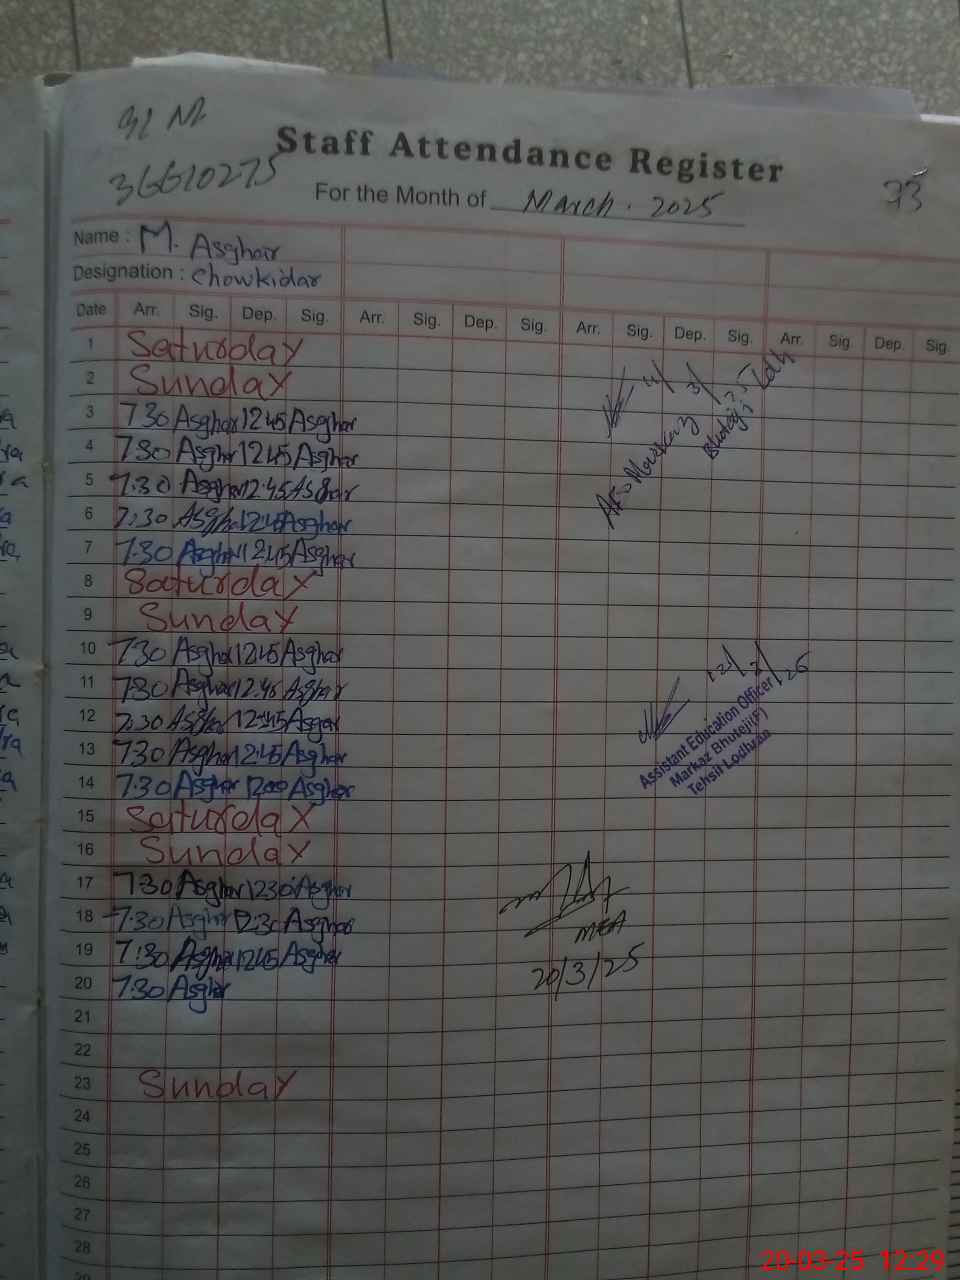 36610275
Staff Attendance Register
73
For the Month of March. 2025
Name : M. Asghar
Designation : Chowkidar
Date Arr. Sig. Dep. Sig. Arr. Sig. Dep. Sig. Arr. Sig. Dep. Sig. Arr. Sig. Dep. Sig.
1 Saturday
2 Sunday
3 7 30 Asghar 12 45 Asghar
4 7 30 Asghar 12 45 Asghar
5 7.30 Asghar 12:45 Asghar
6 7:30 Asghar 12:45 Asghar
7 7.30 Asghar 12 45 Asghar
8 Saturday
9 Sunday
10 7 30 Asghar 12 45 Asghar
11 7 30 Asghar 12.45 Asghar
12 7:30 Asghar 12:45 Asgar
13 7 30 Asghar 12 45 Asghar
14 7.30 Asghar 12 00 Asghar
15 Saturday
16 Sunday
17 7 30 Asghar 12 30 Asghar
18 7.30 Asghar 12:30 Asghar
19 7:30 Asghar 12 45 Asghar
20 7.30 Asghar
21
22
23 Sunday
24
25
26
27
28
4/3/25
Markaz
Bhuteji
Ldh
12/3/25
Assistant Education Officer
Markaz Bhuteji(F)
Tehsil Lodhran
MEA
20/3/25
20-03-25 12:29